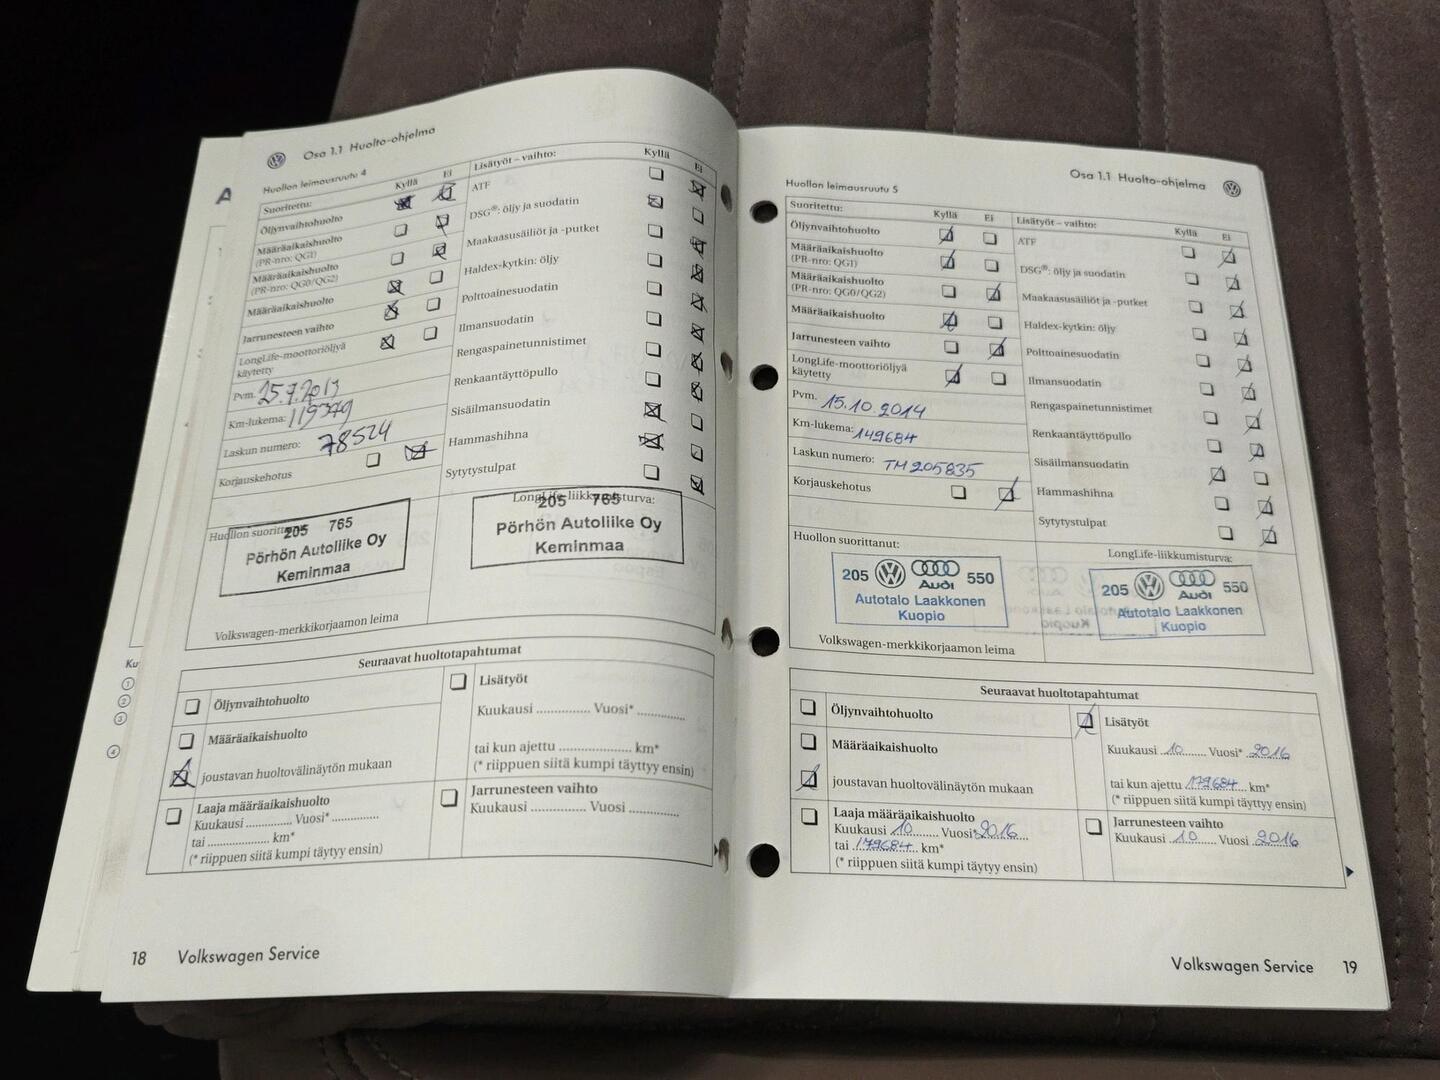 Osa 1.1 Huolto-ohjelma
Huollon leimausruutu 4
Suoritettu:
Kyllä
Ei
Öljynvaihtohuolto
Määräaikaishuolto
(PR-nro: QG1)
Määräaikaishuolto
(PR-nro: QG0/QG2)
Määräaikaishuolto
Jarrunesteen vaihto
LongLife-moottoriöljyä
käytetty
Pvm.
Km-lukema: 119379
Laskun numero: 78524
Korjauskehotus
Lisätyöt – vaihto:
Kyllä
Ei
ATF
DSG®: öljy ja suodatin
Maakaasusäiliöt ja -putket
Haldex-kytkin: öljy
Polttoainesuodatin
Ilmansuodatin
Rengaspainetunnistimet
Renkaantäyttöpullo
Sisäilmansuodatin
Hammashihna
Sytytystulpat
Huollon suorittanut:
205 765
Pörhön Autoliike Oy
Keminmaa
LongLife-liikkumisturva:
205 765
Pörhön Autoliike Oy
Keminmaa
Volkswagen-merkkikorjaamon leima
Seuraavat huoltotapahtumat
Öljynvaihtohuolto
Määräaikaishuolto
joustavan huoltovälinäytön mukaan
Laaja määräaikaishuolto
Kuukausi .............. Vuosi* ..............
tai .................... km*
(* riippuen siitä kumpi täytyy ensin)
Lisätyöt
Kuukausi ............... Vuosi* ...............
tai kun ajettu .................... km*
(* riippuen siitä kumpi täyttyy ensin)
Jarrunesteen vaihto
Kuukausi ............... Vuosi ...............
18 Volkswagen Service
Osa 1.1 Huolto-ohjelma
Huollon leimausruutu 5
Suoritettu:
Kyllä
Ei
Öljynvaihtohuolto
Määräaikaishuolto
(PR-nro: QG1)
Määräaikaishuolto
(PR-nro: QG0/QG2)
Määräaikaishuolto
Jarrunesteen vaihto
LongLife-moottoriöljyä
käytetty
Pvm. 15.10.2014
Km-lukema: 149684
Laskun numero: TM205835
Korjauskehotus
Lisätyöt – vaihto:
Kyllä
Ei
ATF
DSG®: öljy ja suodatin
Maakaasusäiliöt ja -putket
Haldex-kytkin: öljy
Polttoainesuodatin
Ilmansuodatin
Rengaspainetunnistimet
Renkaantäyttöpullo
Sisäilmansuodatin
Hammashihna
Sytytystulpat
Huollon suorittanut:
205 Audi 550
Autotalo Laakkonen
Kuopio
LongLife-liikkumisturva:
205 Audi 550
Autotalo Laakkonen
Kuopio
Volkswagen-merkkikorjaamon leima
Seuraavat huoltotapahtumat
Öljynvaihtohuolto
Määräaikaishuolto
joustavan huoltovälinäytön mukaan
Laaja määräaikaishuolto
Kuukausi 10 Vuosi* 2016
tai 179684 km*
(* riippuen siitä kumpi täytyy ensin)
Lisätyöt
Kuukausi 10 Vuosi* 2016
tai kun ajettu 179684 km*
(* riippuen siitä kumpi täyttyy ensin)
Jarrunesteen vaihto
Kuukausi 10 Vuosi 2016
Volkswagen Service 19